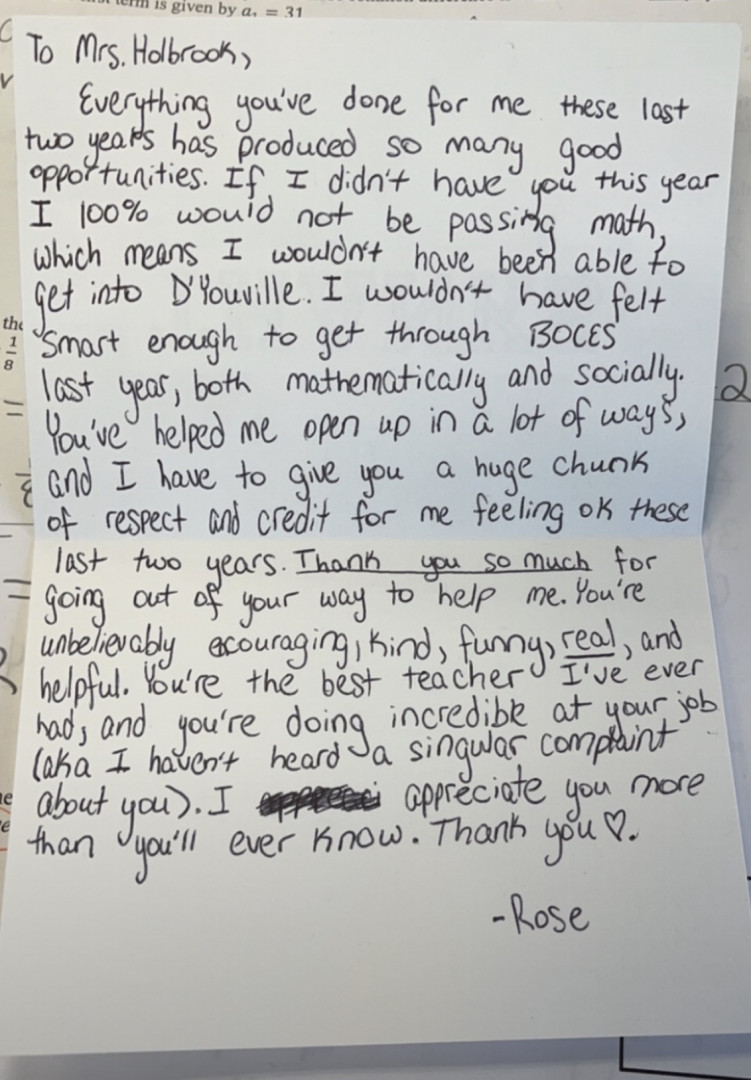 term is given by a₁ = 31
To Mrs. Holbrook,
Everything you've done for me these last
two years has produced so many good
opportunities. If I didn't have you this year
I 100% would not be passing math,
which means I wouldn't have been able to
get into D'Youville. I wouldn't have felt
smart enough to get through BOCES
last year, both mathematically and socially.
You've helped me open up in a lot of ways,
and I have to give you a huge chunk
of respect and credit for me feeling ok these
last two years. Thank you so much for
going out of your way to help me. You're
unbelievably ecouraging, kind, funny, real, and
helpful. You're the best teacher I've ever
had, and you're doing incredible at your job
(aka I haven't heard a singular complaint
about you). I appreciate you more
than you'll ever know. Thank you ♡.
-Rose
the
1/8
2